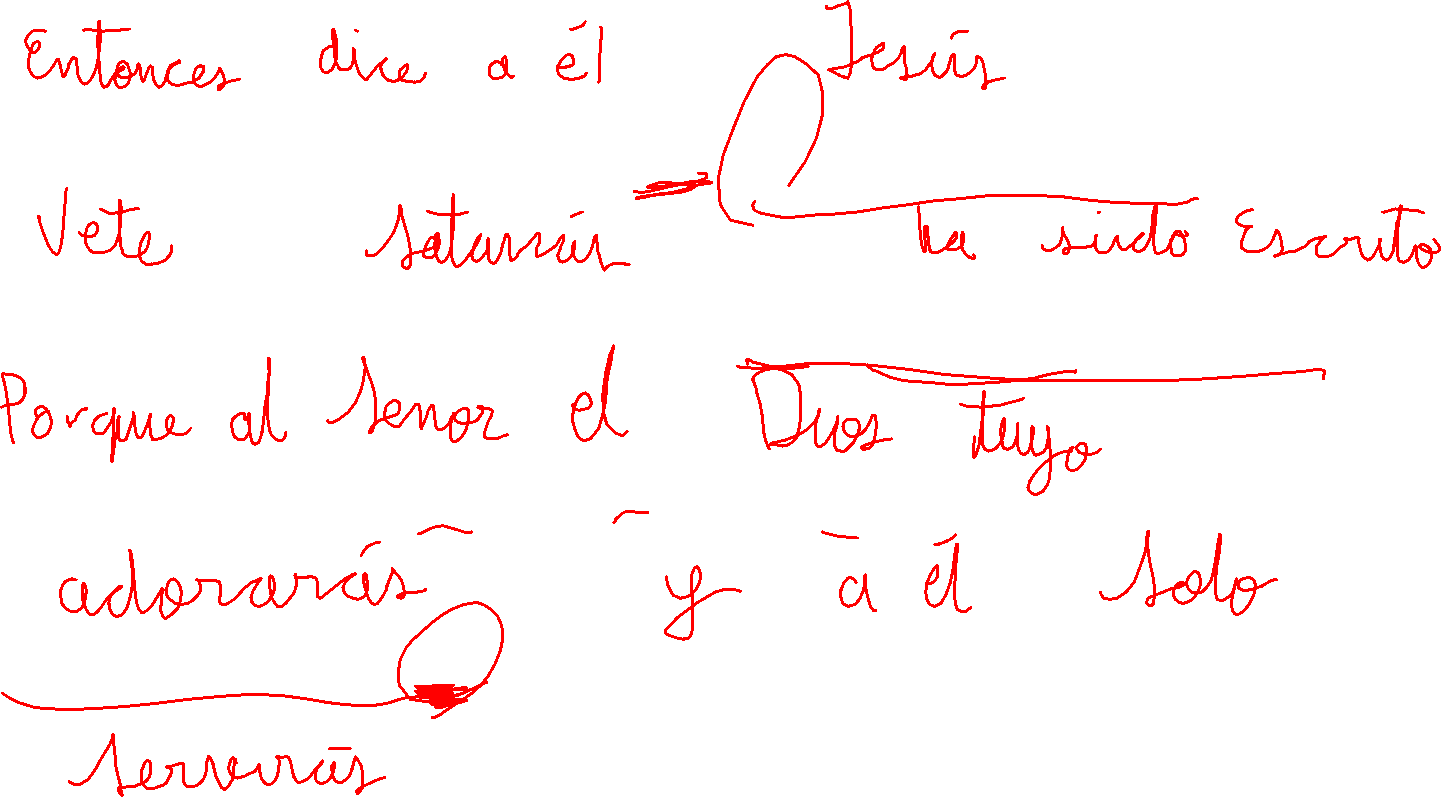 Entonces dice a él Jesús
Vete satanás ha sido Escrito
Porque al senor el Dios tuyo
adorarás y a él solo
servirás